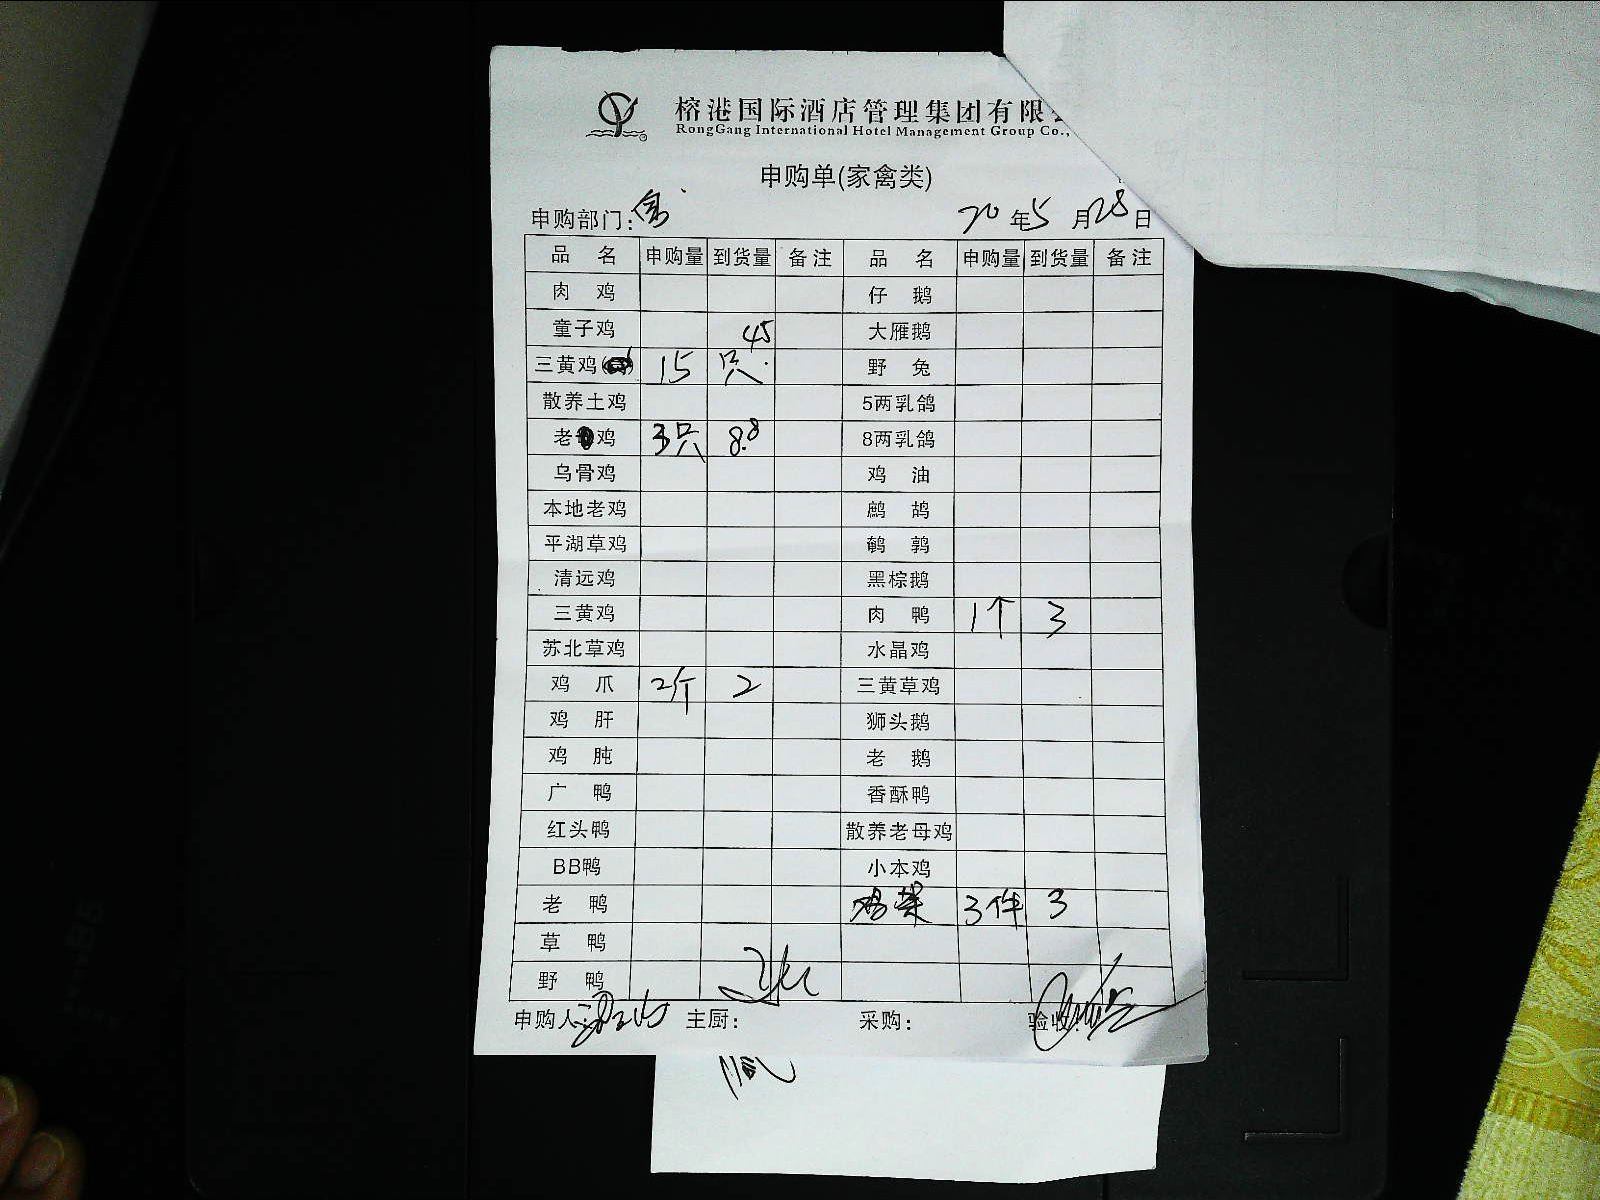 榕港国际酒店管理集团有限
RongGang International Hotel Management Group Co.,
申购单(家禽类)
申购部门:
20年5月28日
品名 申购量 到货量 备注 品名 申购量 到货量 备注
肉鸡 仔鹅
童子鸡 大雁鹅
三黄鸡 15只 45 野兔
散养土鸡 5两乳鸽
老鸡 3只 8.8 8两乳鸽
乌骨鸡 鸡油
本地老鸡 鹧鸪
平湖草鸡 鹌鹑
清远鸡 黑棕鹅
三黄鸡 肉鸭 1个 3
苏北草鸡 水晶鸡
鸡爪 2个 2 三黄草鸡
鸡肝 狮头鹅
鸡肫 老鹅
广鸭 香酥鸭
红头鸭 散养老母鸡
BB鸭 小本鸡
老鸭 鸡架 3件 3
草鸭
野鸭
申购人: 主厨: 采购: 验收: